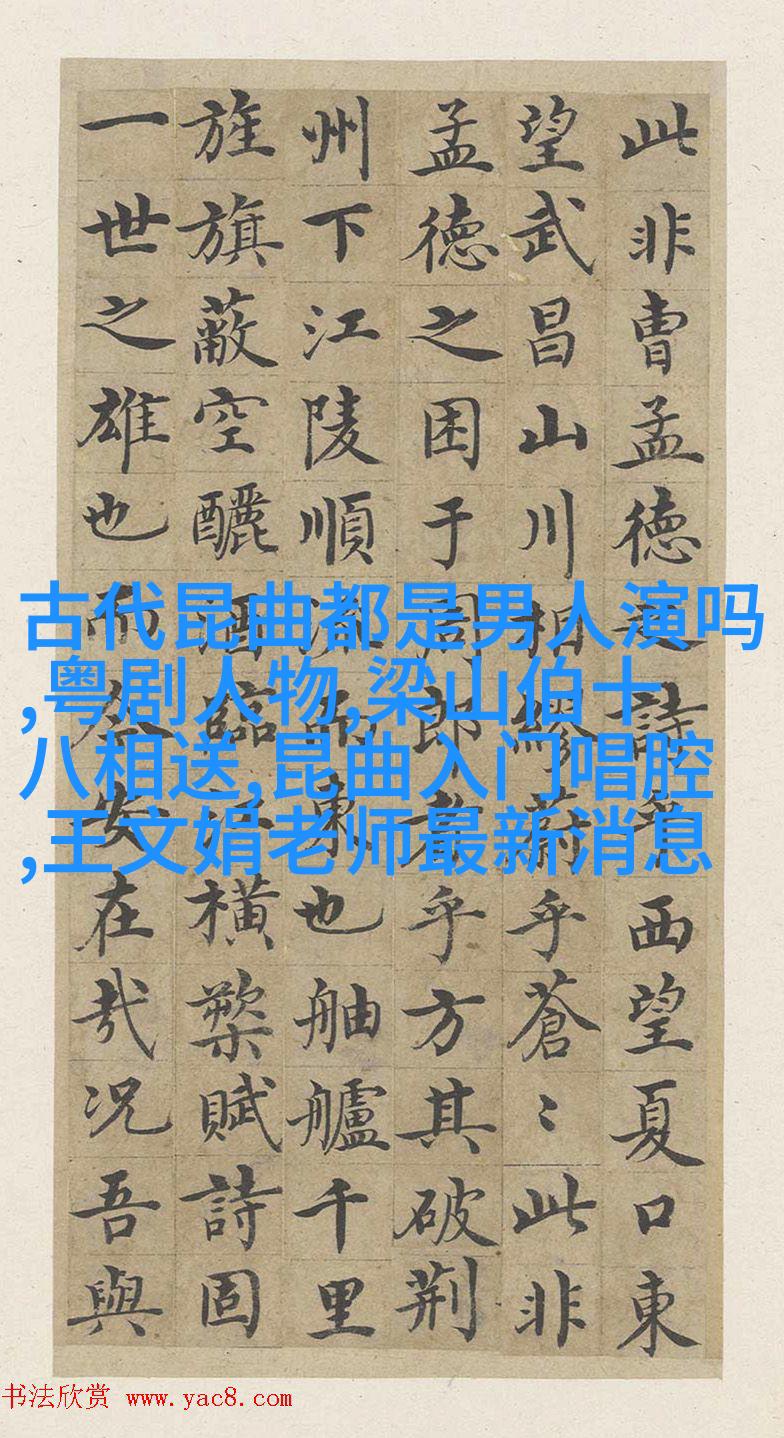 此非曹孟德之詩乎西望夏口東
望武昌山川相繆蔚乎蒼〻此非
孟德之困于周郎者乎方其破荆
州下江陵順流而東也舳艫千里
旌旗蔽空釃酒臨江横槊賦詩固
一世之雄也而今安在哉况吾與
古代昆曲都是男人演吗
,粤剧人物,梁山伯十
八相送,昆曲入门唱腔
,王文娟老师最新消息
书法欣赏 www.yac8.com